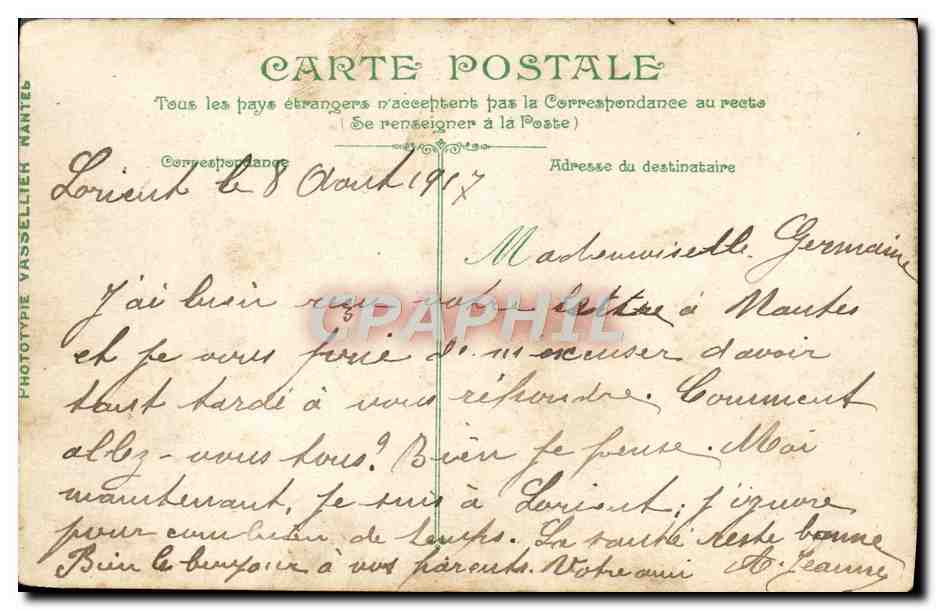 CARTE POSTALE
Tous les pays étrangers n'acceptent pas la Correspondance au recto
(Se renseigner à la Poste)
Correspondance
Adresse du destinataire
PHOTOTYPIE VASSELLIER NANTES
Lorient le 8 Aout 1917
Mademoiselle Germaine
J'ai bien reçu votre lettre à Nantes
et je vous prie d' m'excuser d'avoir
tant tardé à vous répondre. Comment
allez-vous tous? Bien je pense. Moi
maintenant, je suis à Lorient, j'ignore
pour combien de temps. La santé reste bonne
Bien le bonjour à vos parents. Votre ami A. Jeanne
CPAPHIL